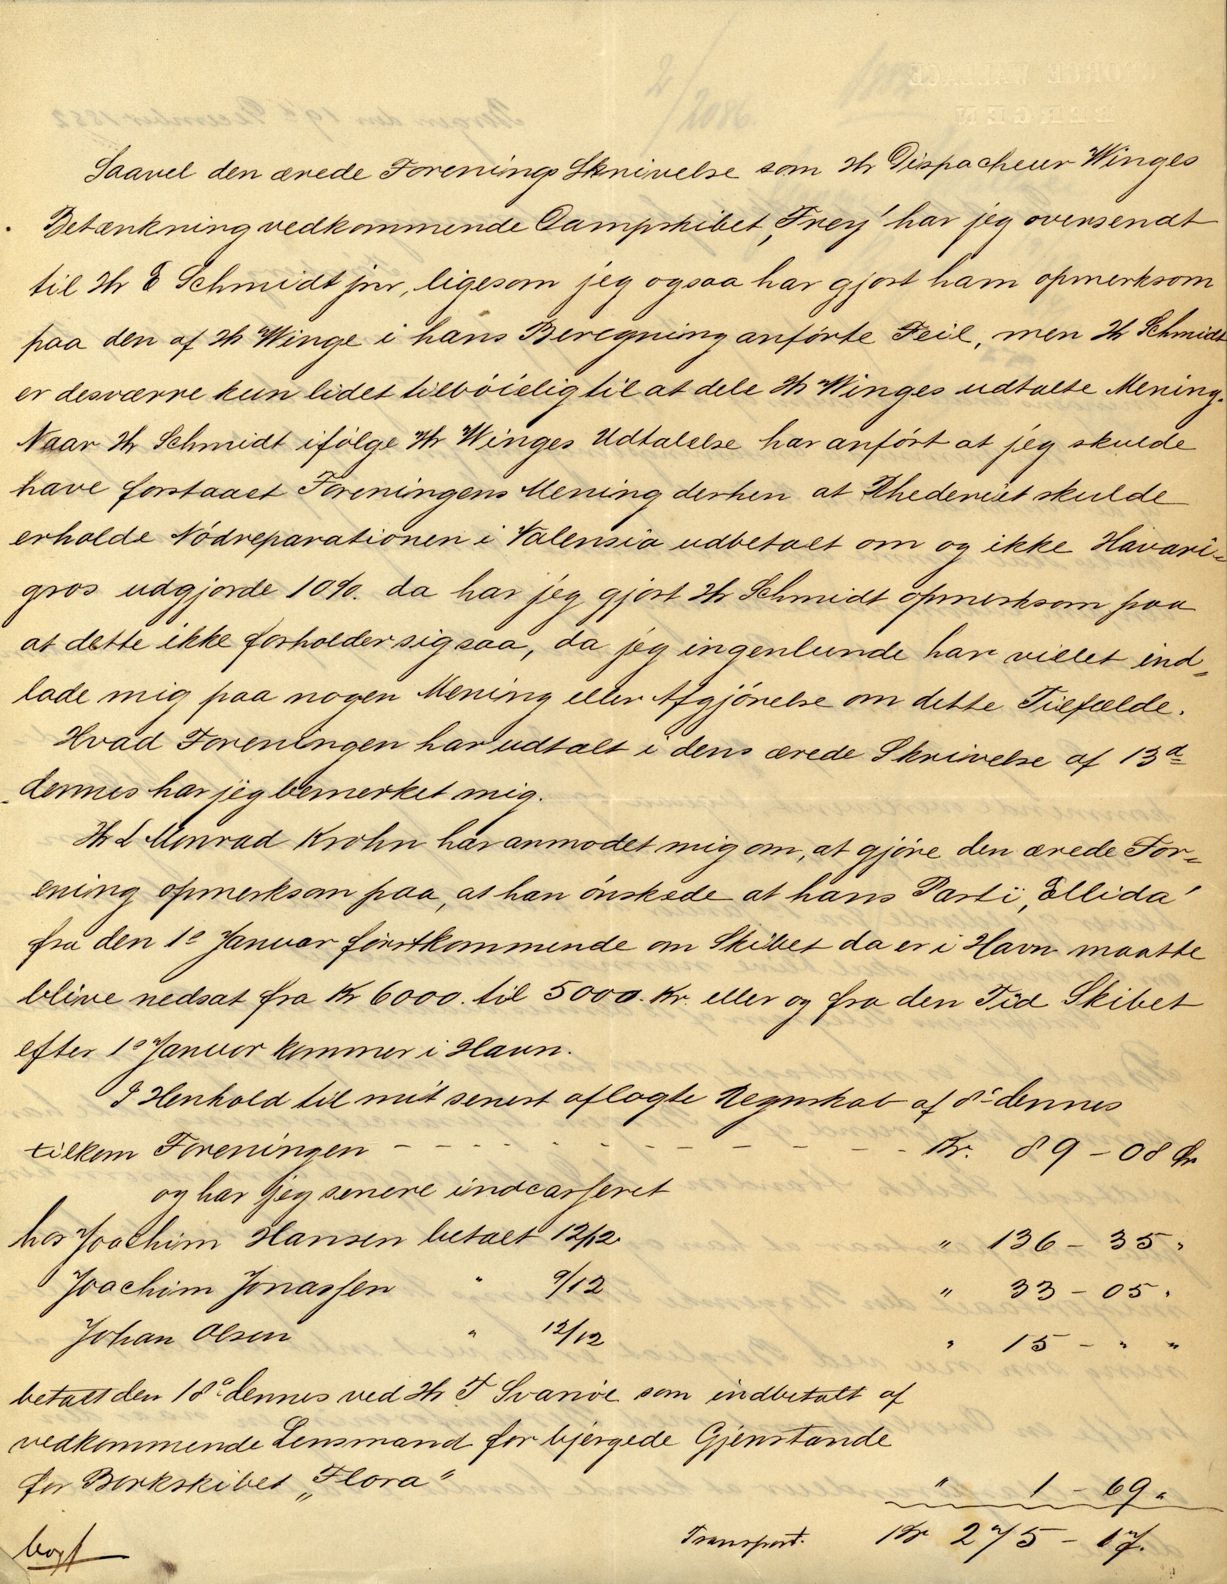 2/2086
Saavel den ærede Forenings Skrivelse som Hr Dispacheur Winges
Betænkning vedkommende Dampskibet „Frey" har jeg oversendt
til Hr E Schmidt jnr, ligesom jeg ogsaa har gjort ham opmerksom
paa den af Hr Winge i hans Beregning anførte Feil, men Hr Schmidt
er desværre kun lidet tilbøielig til at dele Hr Winges udtalte Mening.
Naar Hr Schmidt ifølge Hr Winges Udtalelse har anført at jeg skulde
have forstaaet Foreningens Mening derhen at Rhederiet skulde
erholde Nødreparationen i Valensia udbetalt om og ikke Havari-
gros udgjorde 10%. da har jeg gjort Hr Schmidt opmerksom paa
at dette ikke forholder sig saa, da jeg ingenlunde har villet ind-
lade mig paa nogen Mening eller Afgjørelse om dette Tilfælde.
Hvad Foreningen har udtalt i dens ærede Skrivelse af 13d
dennes har jeg bemerket mig.
Hr L Monrad Krohn har anmodet mig om, at gjøre den ærede For-
ening opmerksom paa, at han ønskede at hans Parti „Ellida"
fra den 1e Januar førstkommende om Skibet da er i Havn maatte
blive nedsat fra Kr 6000. til 5000. Kr. eller og fra den Tid Skibet
efter 1e Januar kommer i Havn.
I Henhold til mit senest aflagte Regnskab af 8e dennes
tilkom Foreningen - - - - - - - - - - Kr. 89 - 08 Ør
og har jeg senere indcasseret
hos Joachim Hansen betalt 12/12 " 136 - 35 "
Joachim Jonassen " 9/12 " 33 - 05 "
Johan Olsen " 12/12 " 15 - " "
betalt den 18e dennes ved Hr T Svanøe som indbetalt af
vedkommende Lensmand for bjergede Gjenstande
for Barkskibet „Flora" " 1 - 69 "
Transport. Kr 275 - 17.